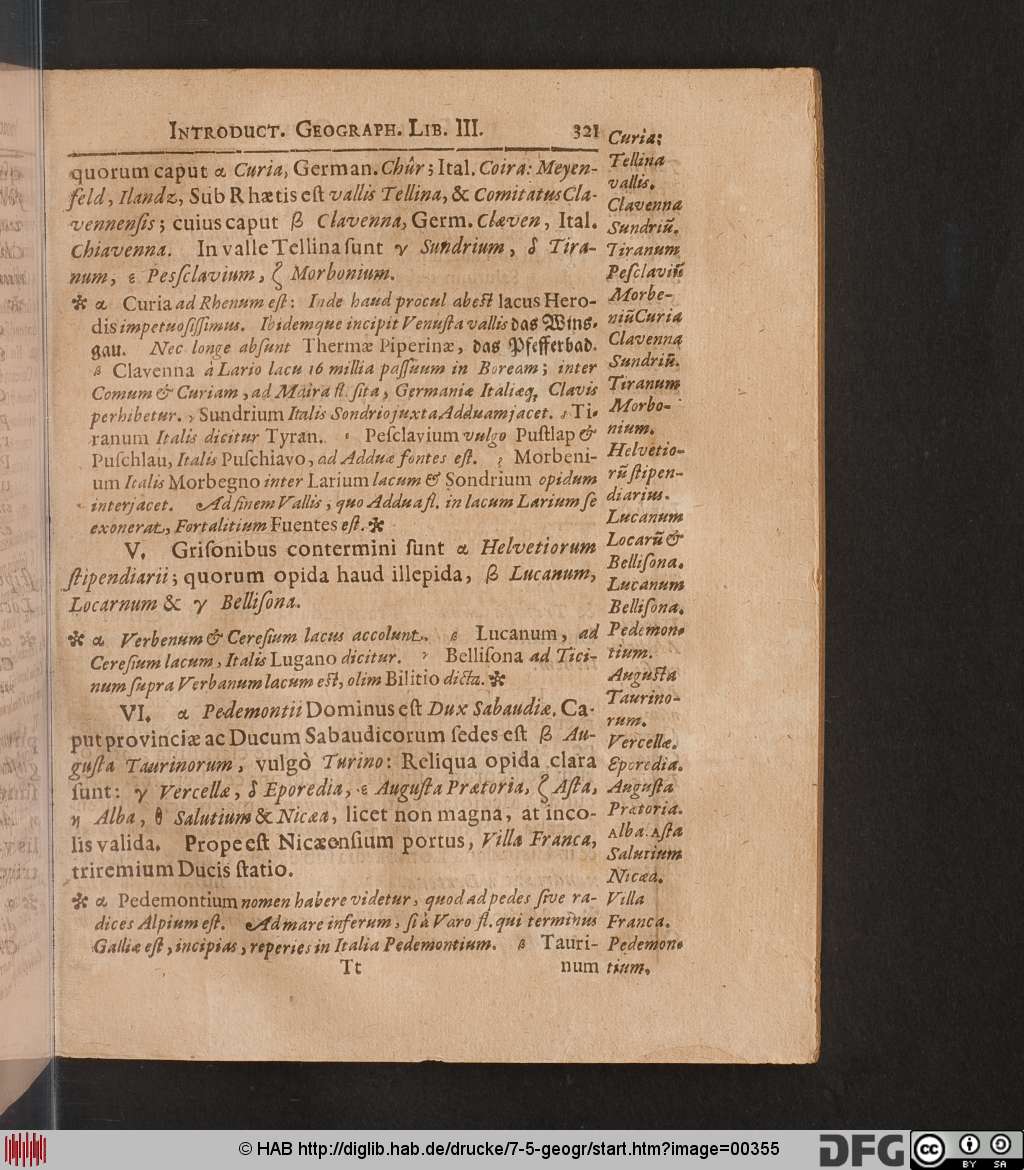 INTRODUCT. GEOGRAPH. LIB. III. 321
quorum caput α Curia, German. Chûr; Ital. Coira: Meyen-
feld, Ilandz, Sub Rhætis eſt vallis Tellina, & Comitatus Cla-
vennenſis; cuius caput β Clavenna, Germ. Clæven, Ital.
Chiavenna. In valle Tellina ſunt γ Sundrium, δ Tira-
num, ε Pesſclavium, ζ Morbonium.
✲ α Curia ad Rhenum eſt: Inde haud procul abest lacus Hero-
dis impetuoſiſſimus. Ibidemque incipit Venuſta vallis das Wins-
gau. Nec longe abſunt Thermæ Piperinæ, das Pfefferbad.
β Clavenna à Lario lacu 16 millia paſſuum in Boream; inter
Comum & Curiam, ad Maira fl. ſita, Germaniæ Italiæq; Clavis
perhibetur. γ Sundrium Italis Sondrio juxta Adduam jacet. δ Ti-
ranum Italis dicitur Tyran. ε Peſclavium vulgo Puſtlap &
Puſchlau, Italis Puſchiavo, ad Adduæ fontes eſt. ζ Morbeni-
um Italis Morbegno inter Larium lacum & Sondrium opidum
interjacet. Ad finem Vallis, quo Addua fl. in lacum Larium ſe
exonerat, Fortalitium Fuentes eſt. ✲
V. Griſonibus contermini ſunt α Helvetiorum
ſtipendiarii; quorum opida haud illepida, β Lucanum,
Locarnum & γ Belliſona.
✲ α Verbenum & Cereſium lacus accolunt. β Lucanum, ad
Cereſium lacum, Italis Lugano dicitur. γ Belliſona ad Tici-
num ſupra Verbanum lacum eſt, olim Bilitio dicta. ✲
VI. α Pedemontii Dominus eſt Dux Sabaudiæ. Ca-
put provinciæ ac Ducum Sabaudicorum ſedes eſt β Au-
guſta Taurinorum, vulgò Turino: Reliqua opida clara
ſunt: γ Vercellæ, δ Eporedia, ε Auguſta Prætoria, ζ Aſta,
η Alba, θ Salutium & Nicæa, licet non magna, at inco-
lis valida. Prope eſt Nicæenſium portus, Villa Franca,
triremium Ducis ſtatio.
✲ α Pedemontium nomen habere videtur, quod ad pedes ſive ra-
dices Alpium eſt. Ad mare inferum, ſi à Varo fl. qui terminus
Galliæ eſt, incipias, reperies in Italia Pedemontium. β Tauri-
Tt num
Curia;
Tellina
vallis.
Clavenna
Sundriũ.
Tiranum
Peſclaviũ
Morbe-
niũ Curia
Clavenna
Sundriũ.
Tiranum
Morbo-
nium.
Helvetio-
rũ ſtipen-
diarius.
Lucanum
Locarũ &
Belliſona.
Lucanum
Belliſona.
Pedemon-
tium.
Auguſta
Taurino-
rum.
Vercellæ.
Eporedia.
Auguſta
Prætoria.
Alba. Aſta
Salutium
Nicæa.
Villa
Franca.
Pedemon-
tium.
© HAB http://diglib.hab.de/drucke/7-5-geogr/start.htm?image=00355
DFG
cc
BY SA